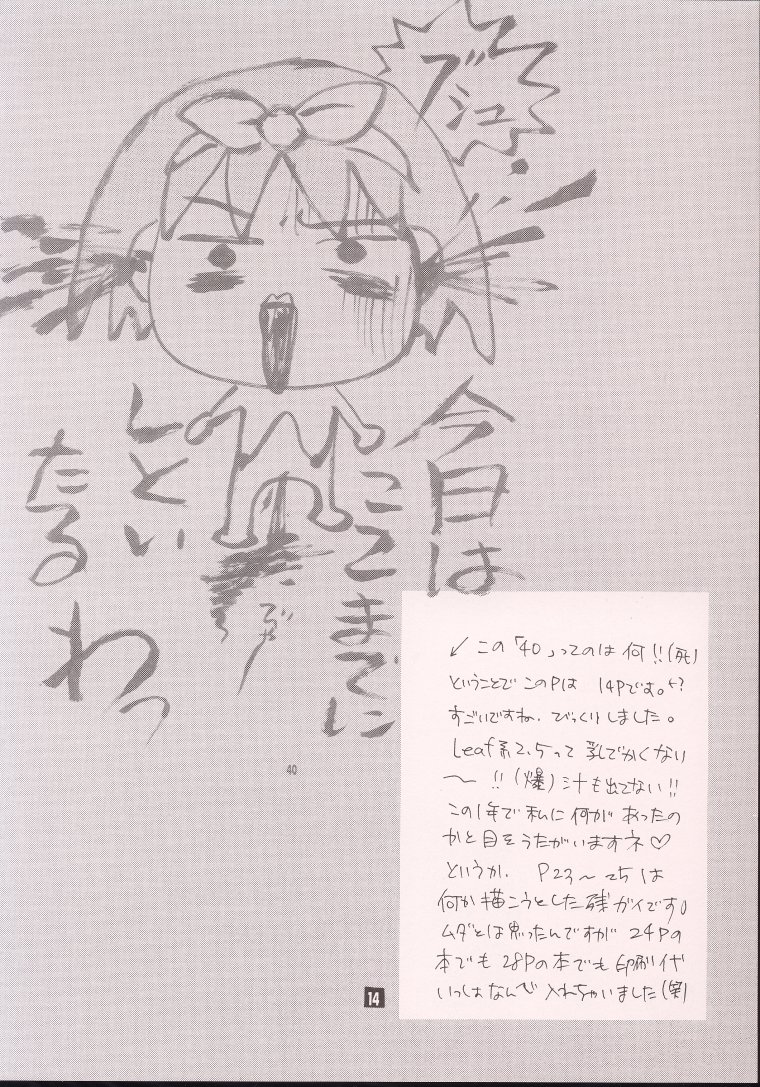 ブシュ
今日は
ここまでに
しとい
たるわっ
40
14
↙この「40」ってのは何!!(死)
ということでこのPは 14Pです。↔?
すごいですね、びっくりしました。
Leaf系2.5って乳でかくない
〜 !!(爆)汁も出てない!!
この1年で私に何があったの
かと目をうたがいますネ♡
というか、P23〜25は
何か描こうとした残ガイです。
ムダとは思ったんですが 24Pの
本でも 28Pの本でも 印刷代
いっしょなんで 入れちゃいました(笑)